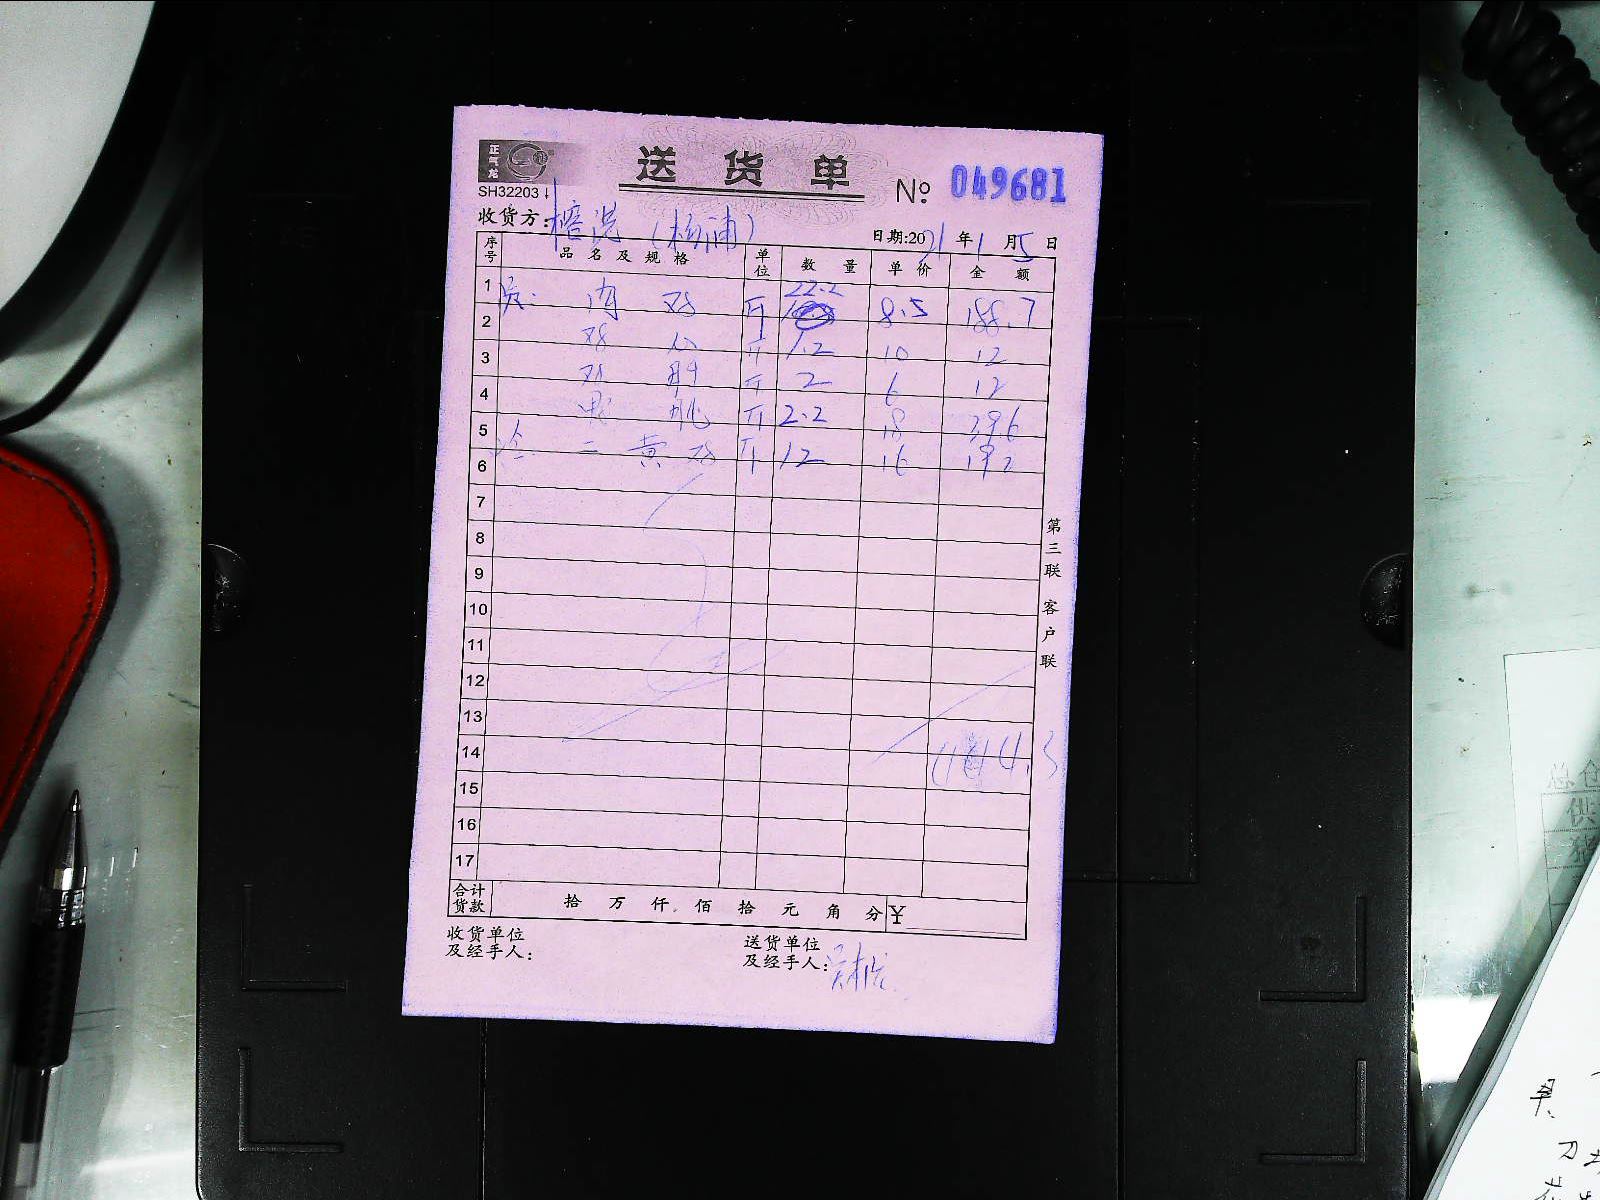 正气龙
送 货 单
SH32203
№ 049681
收货方: 榕港(杨浦)
日期:2021年1月5日
序号 品名及规格 单位 数量 单价 金额
1 员: 肉鸡 斤 22.2 8.5 188.7
2 鸡 斤 1.2 10 12
3 鸡肝 斤 2 6 12
4 斤 2.2 18 39.6
5 二黄鸡 斤 12 16 192
6
7
8
9
10
11
12
13
14 4.3
15
16
17
第三联 客户联
合计货款 拾 万 仟 佰 拾 元 角 分 ¥
收货单位及经手人:
送货单位及经手人: